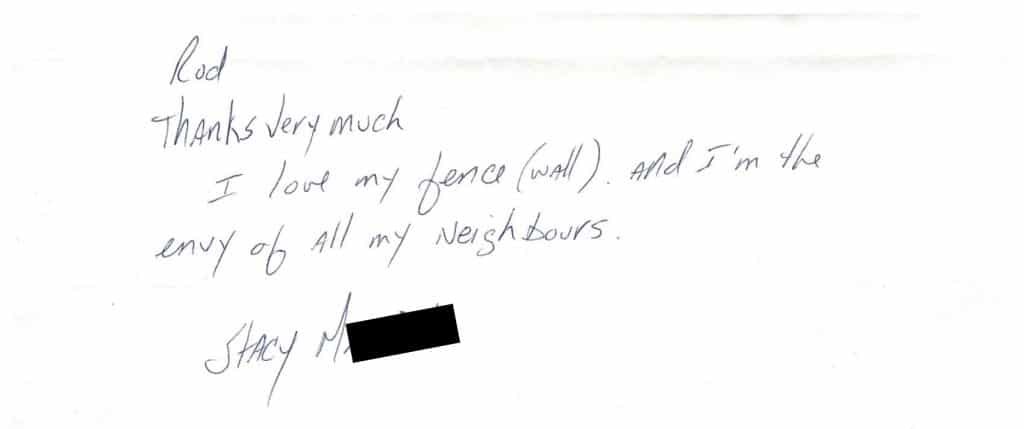 Rod
Thanks Very much
I love my fence (wall). And I'm the
envy of All my Neighbours.
Stacy M